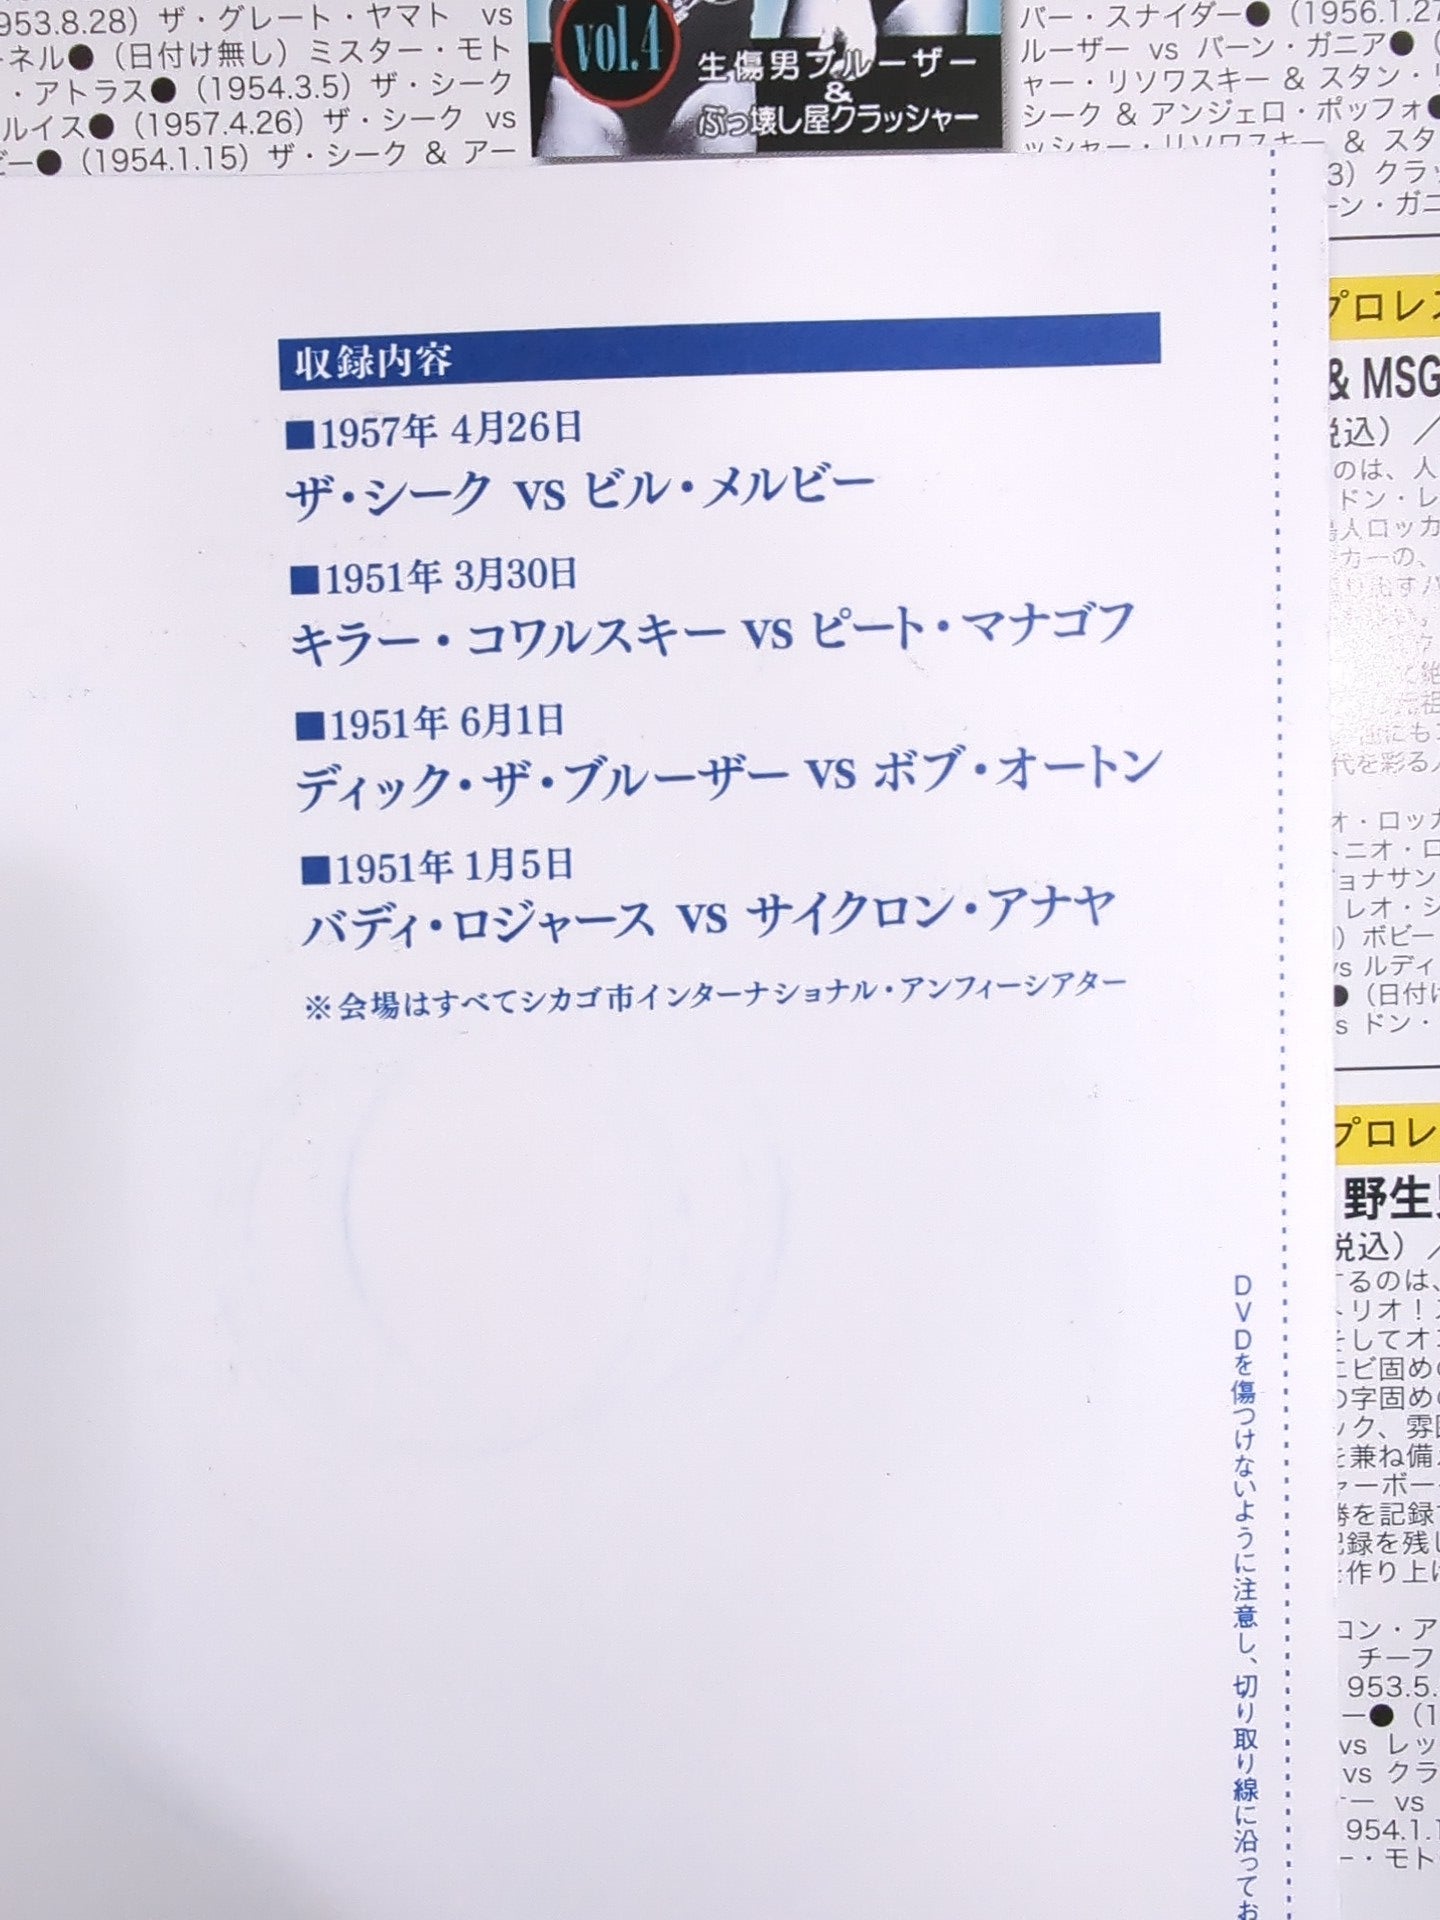 953.8.28）ザ・グレート・ヤマト vs
ネル●（日付け無し）ミスター・モト
・アトラス●（1954.3.5）ザ・シーク
ルイス●（1957.4.26）ザ・シーク vs
ビー●（1954.1.15）ザ・シーク & アー
vol.4
生傷男ブルーザー
&
ぶっ壊し屋クラッシャー
バー・スナイダー●（1956.1.27
ルーザー vs バーン・ガニア●（
ャー・リソワスキー & スタン・
シーク & アンジェロ・ポッフォ●
ッシャー・リソワスキー & スタ
3）クラッ
ーン・ガニ
収録内容
■1957年 4月26日
ザ・シーク vs ビル・メルビー
■1951年 3月30日
キラー・コワルスキー vs ピート・マナゴフ
■1951年 6月1日
ディック・ザ・ブルーザー vs ボブ・オートン
■1951年 1月5日
バディ・ロジャース vs サイクロン・アナヤ
※会場はすべてシカゴ市インターナショナル・アンフィーシアター
DVDを傷つけないように注意し、切り取り線に沿ってお
プロレス
& MSG
税込）／
のは、人
ドン・レ
人ロッカ
カーの、
り出すバ
絶
元祖
にも
代を彩る人
オ・ロッカ
トニオ・ロ
ョナサン
レオ・シ
）ボビー
vs ルディ
●（日付け
s ドン・
プロレ
野生児
税込）／
するのは、
トリオ！ス
そしてオ
エビ固めの
の字固めの
ック、雰囲
を兼ね備
ャーボー
勝を記録
記録を残し
作り上げ
ロン・ア
チーフ
953.5.
ー●（1
vs レッ
vs クラ
ー vs
954.1.1
ー・モト